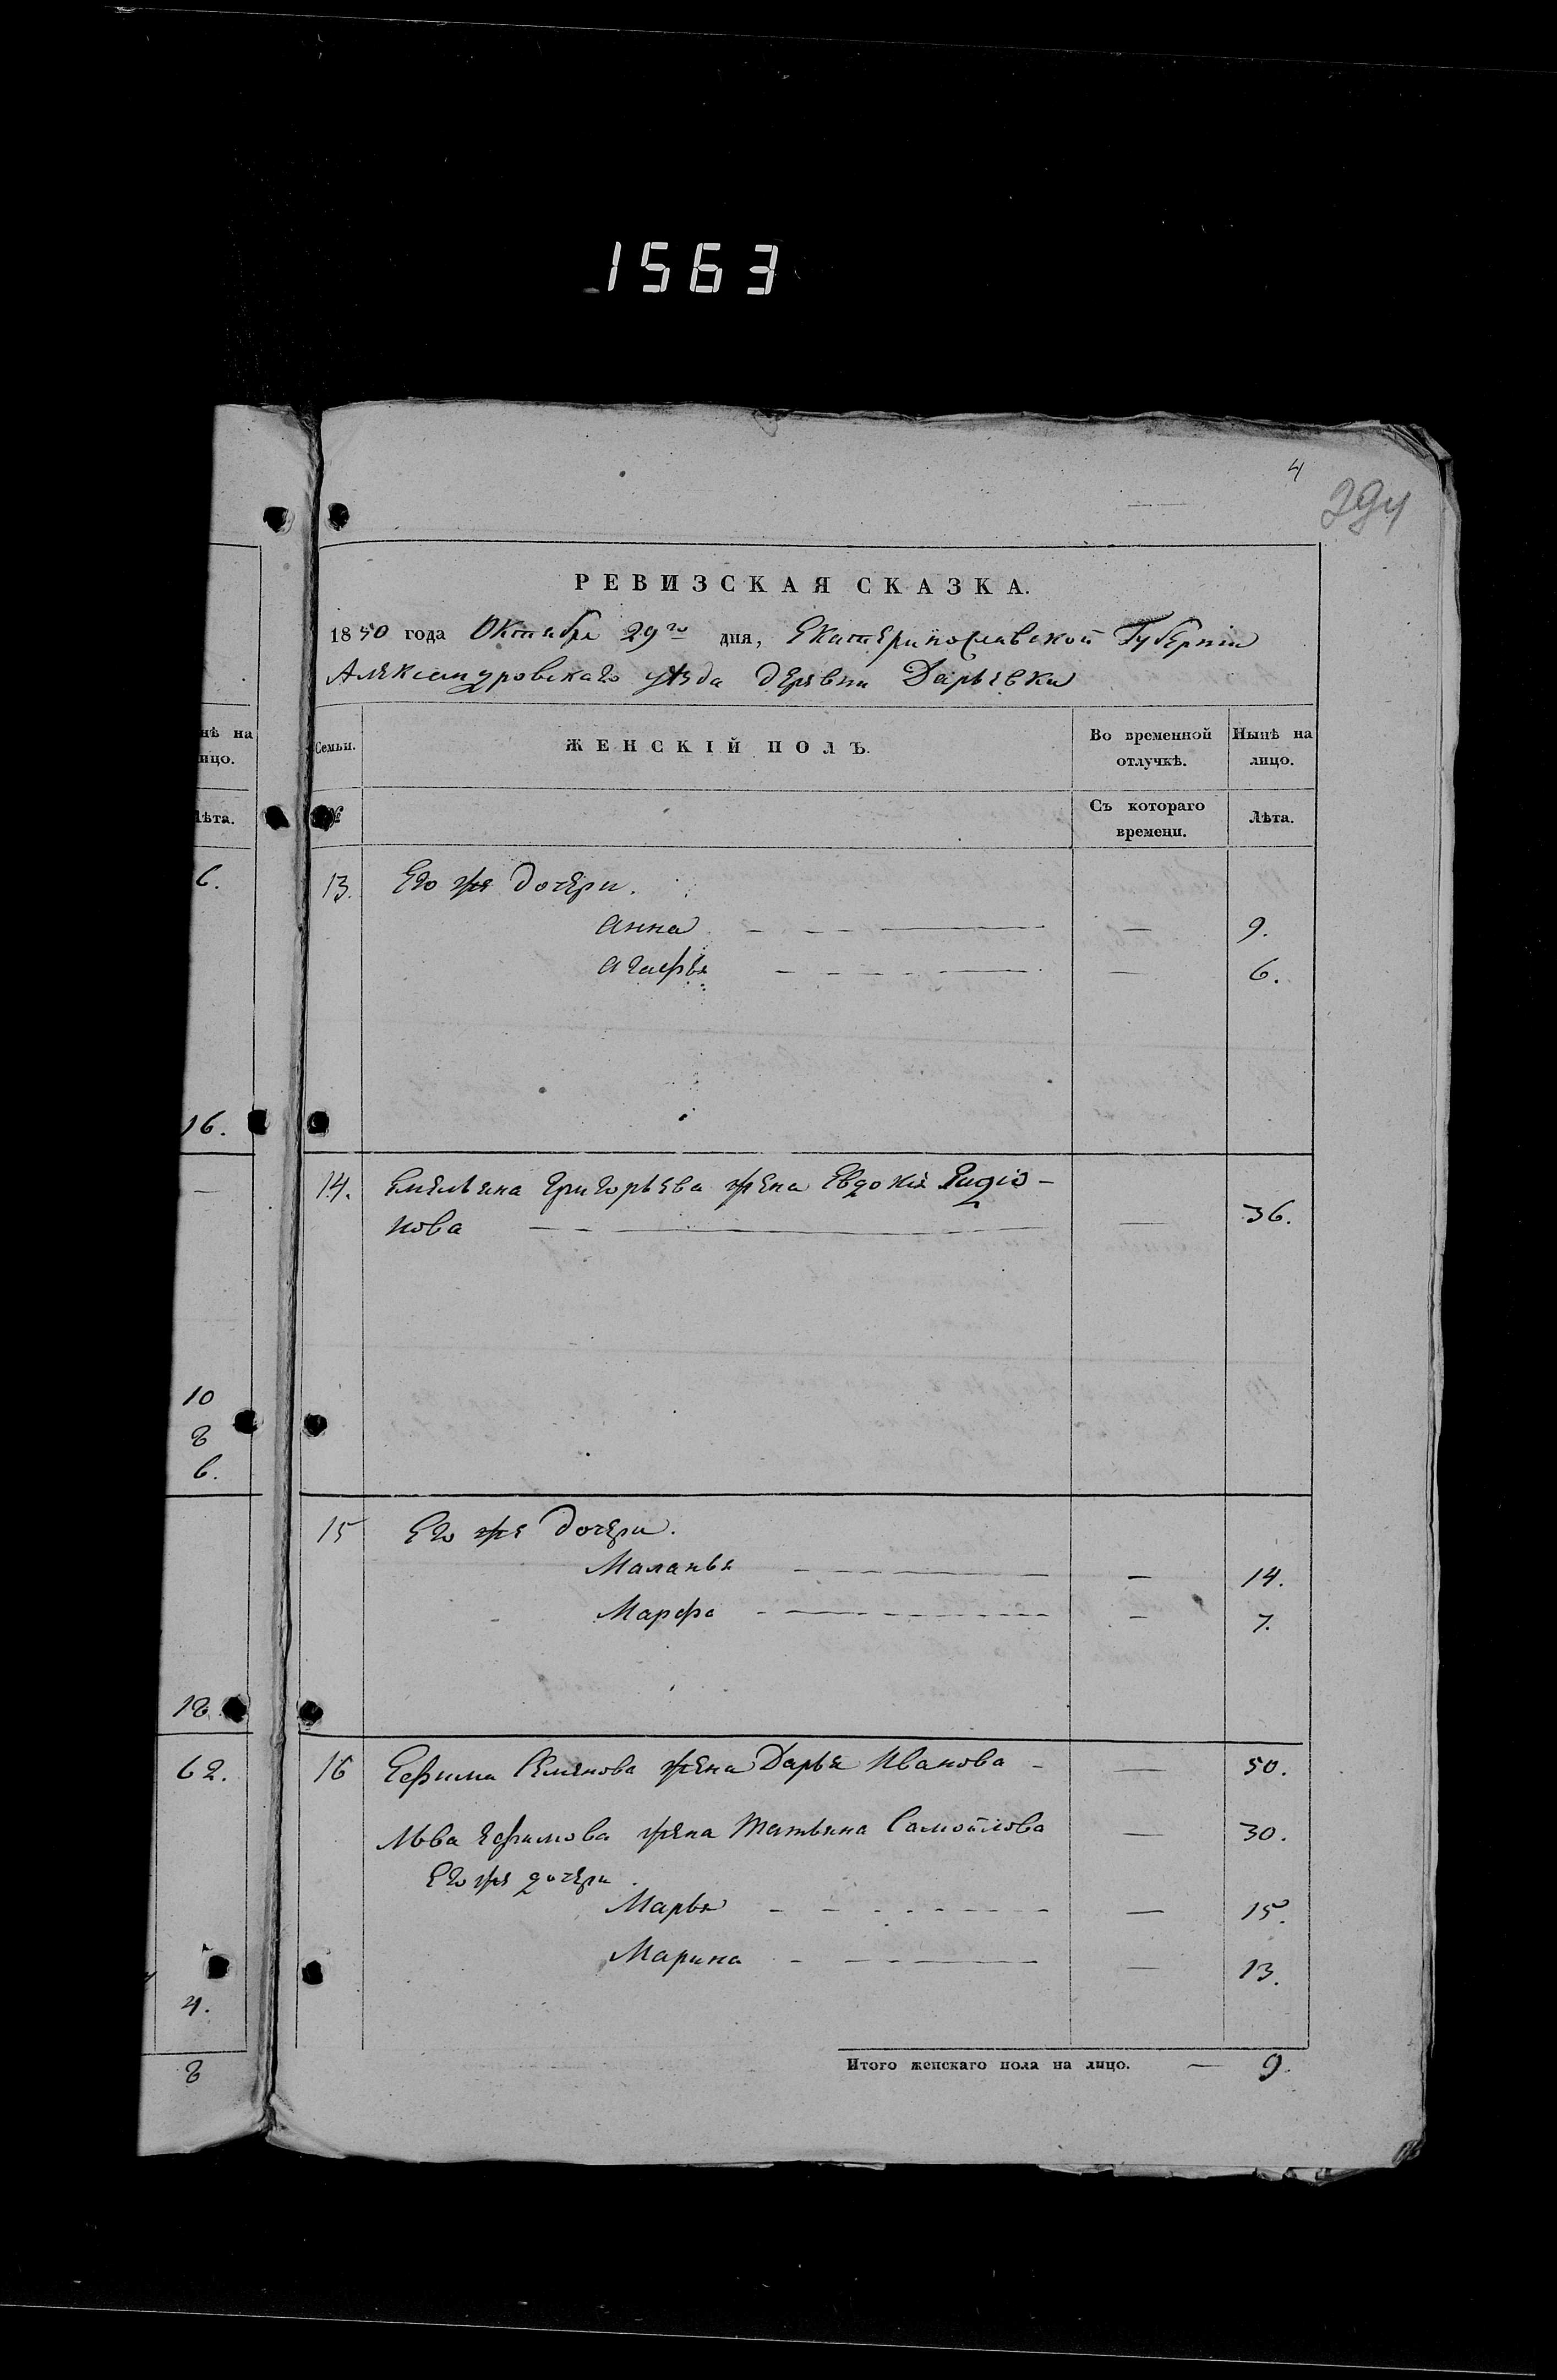 1563
4
394
РЕВИЗСКАЯ СКАЗКА.
1850 года Октября 29го дня, Екатеринославской Губернiи
Александровскаго уѣзда деревни Дарьевки
нѣ на
ицо.
Лѣта.
6.
16.
—
10
8
6.
18.
62.
4.
8
Семьи. ЖЕНСКІЙ ПОЛЪ. Во временной отлучкѣ. Нынѣ на лицо.
№ Съ котораго времени. Лѣта.
13. Его же дочери.
Анна — 9.
Агафья — 6.
14. Емельяна Григорьева жена Евдокiя Родiо-
нова — 36.
15 Его же дочери.
Маланья — 14.
Марфа — 7.
16 Ефима Семенова жена Дарья Иванова — 50.
Льва Ефимова жена Татьяна Самойлова — 30.
Его же дочери.
Марья — 15.
Марина — 13.
Итого женскаго пола на лицо. — 9.